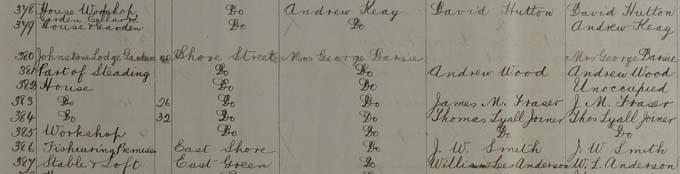 378 House Workshop Do Andrew Keay David Hutton David Hutton
Garden Cellars
379 House & Garden Do Do Andrew Keay
380 Johnstone Lodge Garden Shore Street Mrs George Darsie Mrs George Darsie
381 Part of Steading Do Do Andrew Wood Andrew Wood
382 House Do Do Unoccupied
383 Do 26 Do Do James M. Fraser J. M. Fraser
384 Do 32 Do Do Thomas Lyall Joiner Thos Lyall Joiner
385 Workshop Do Do Do Do
386 Fishcuring Premises East Shore Do J. W. Smith J W Smith
387 Stable & Loft East Green Do William Lees Anderson W. L. Anderson